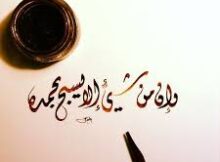 وإن من شيء إلا يسبح بحمده